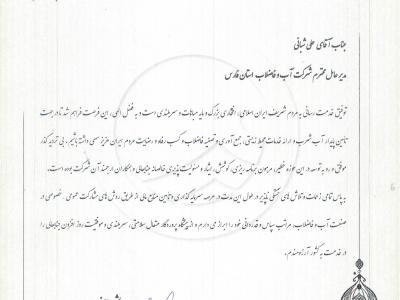 جناب آقای علی شبانی
مدیرعامل محترم شرکت آب و فاضلاب استان فارس
توفیق خدمت رسانی به مردم شریف ایران اسلامی، افتخاری بزرگ و مایه مباهات و سربلندی است و به فضل الهی، این فرصت فراهم شد تا در جهت
تأمین پایدار آب شرب و ارائه خدمات محیط زیستی، جمع آوری و تصفیه فاضلاب و کسب رفاه و رضایت مردم عزیز سعی داشته باشیم. بی تردید گذر
موفق و رو به توسعه در این حوزه خطیر، مرهون برنامه ریزی، کوشش، ایثار و مسئولیت پذیری خالصانه جنابعالی و همکاران ارجمند آن شرکت بوده است.
به پاس تمامی زحمات و تلاش های خستگی ناپذیر در طول این مدت در عرصه سرمایه گذاری و تأمین منابع مالی از طریق روش های مشارکت عمومی ـ خصوصی در
صنعت آب و فاضلاب، مراتب سپاس و قدردانی خود را ابراز می دارم و از پیشگاه پروردگار متعال سلامتی، سربلندی و موفقیت روز افزون جنابعالی را
در خدمت به کشور آرزومندم.